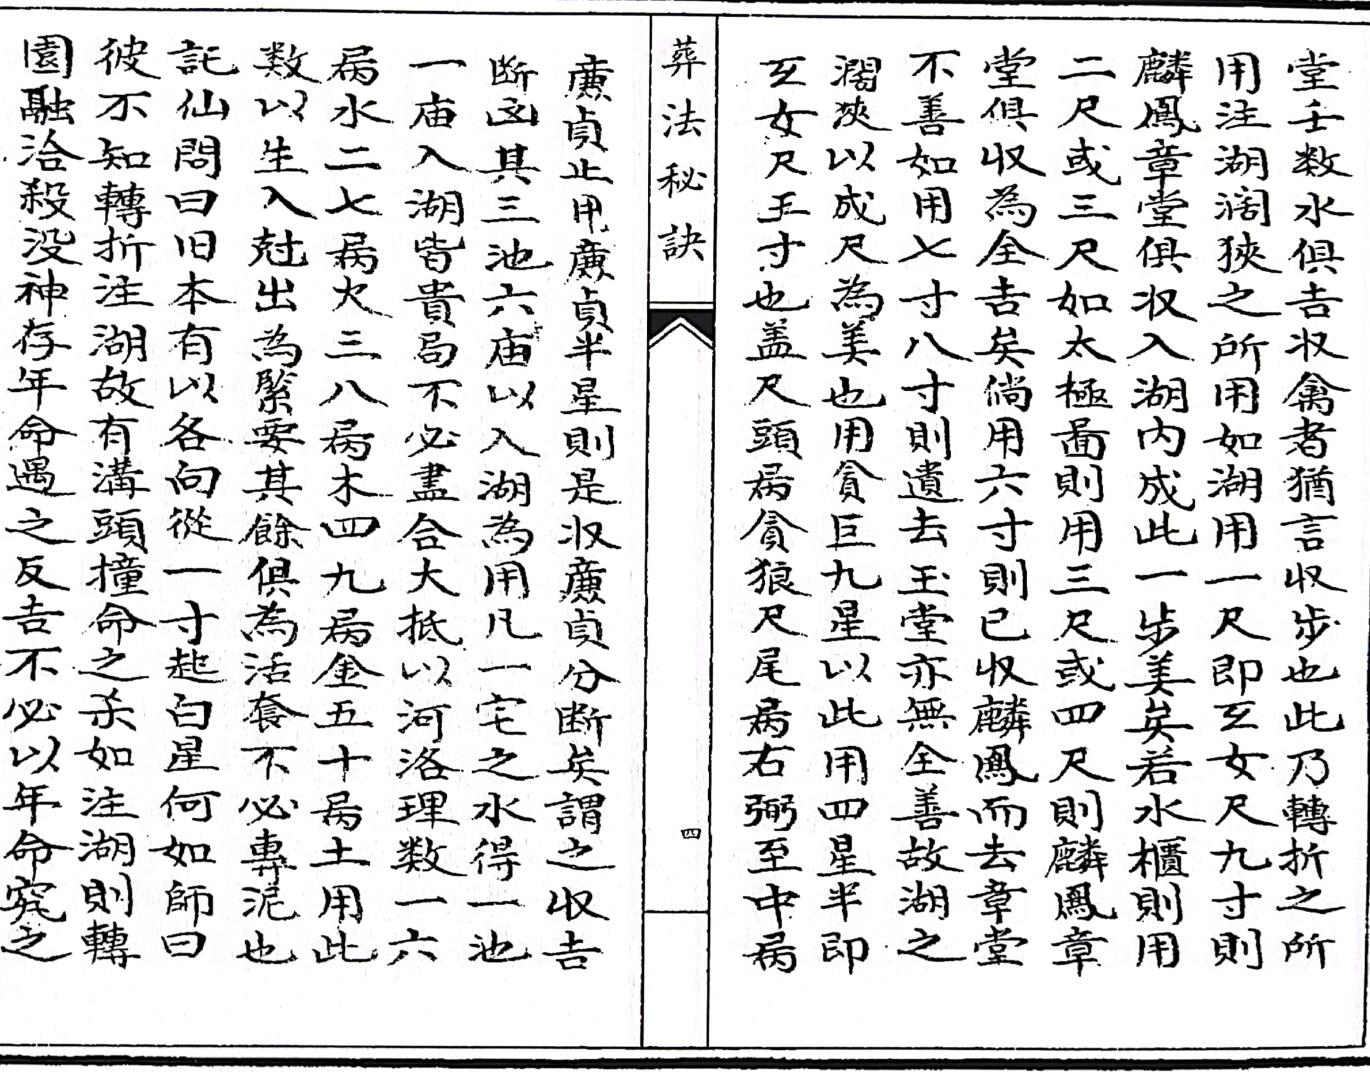 堂壬数水俱吉収禽者猶言収步也此乃轉折之所
用注湖濶狹之所用如湖用一尺即玄女尺九寸則
麟鳳章堂俱収入湖内成此一步美矣若水櫃則用
二尺或三尺如太極啚則用三尺或四尺則麟鳳章
堂俱収為全吉矣倘用六寸則已収麟鳳而去章堂
不善如用七寸八寸則遺去玉堂亦無全善故湖之
濶狹以成尺為美也用貪巨九星以此用四星半即
玄女尺五寸也盖尺頭為貪狼尺尾為右弼至中為
葬法秘訣
四
廉貞止用廉貞半星則是収廉貞分断矣謂之収吉
断凶其三池六庙以入湖為用凡一宅之水得一池
一庙入湖皆貴局不必盡合大抵以河洛理数一六
為水二七為火三八為木四九為金五十為土用此
数以生入尅出為緊要其餘俱為活套不必專泥也
託仙問曰旧本有以各向從一寸起白星何如師曰
彼不知轉折注湖故有溝頭撞命之杀如注湖則轉
園融洽殺没神存年命遇之反吉不必以年命究之